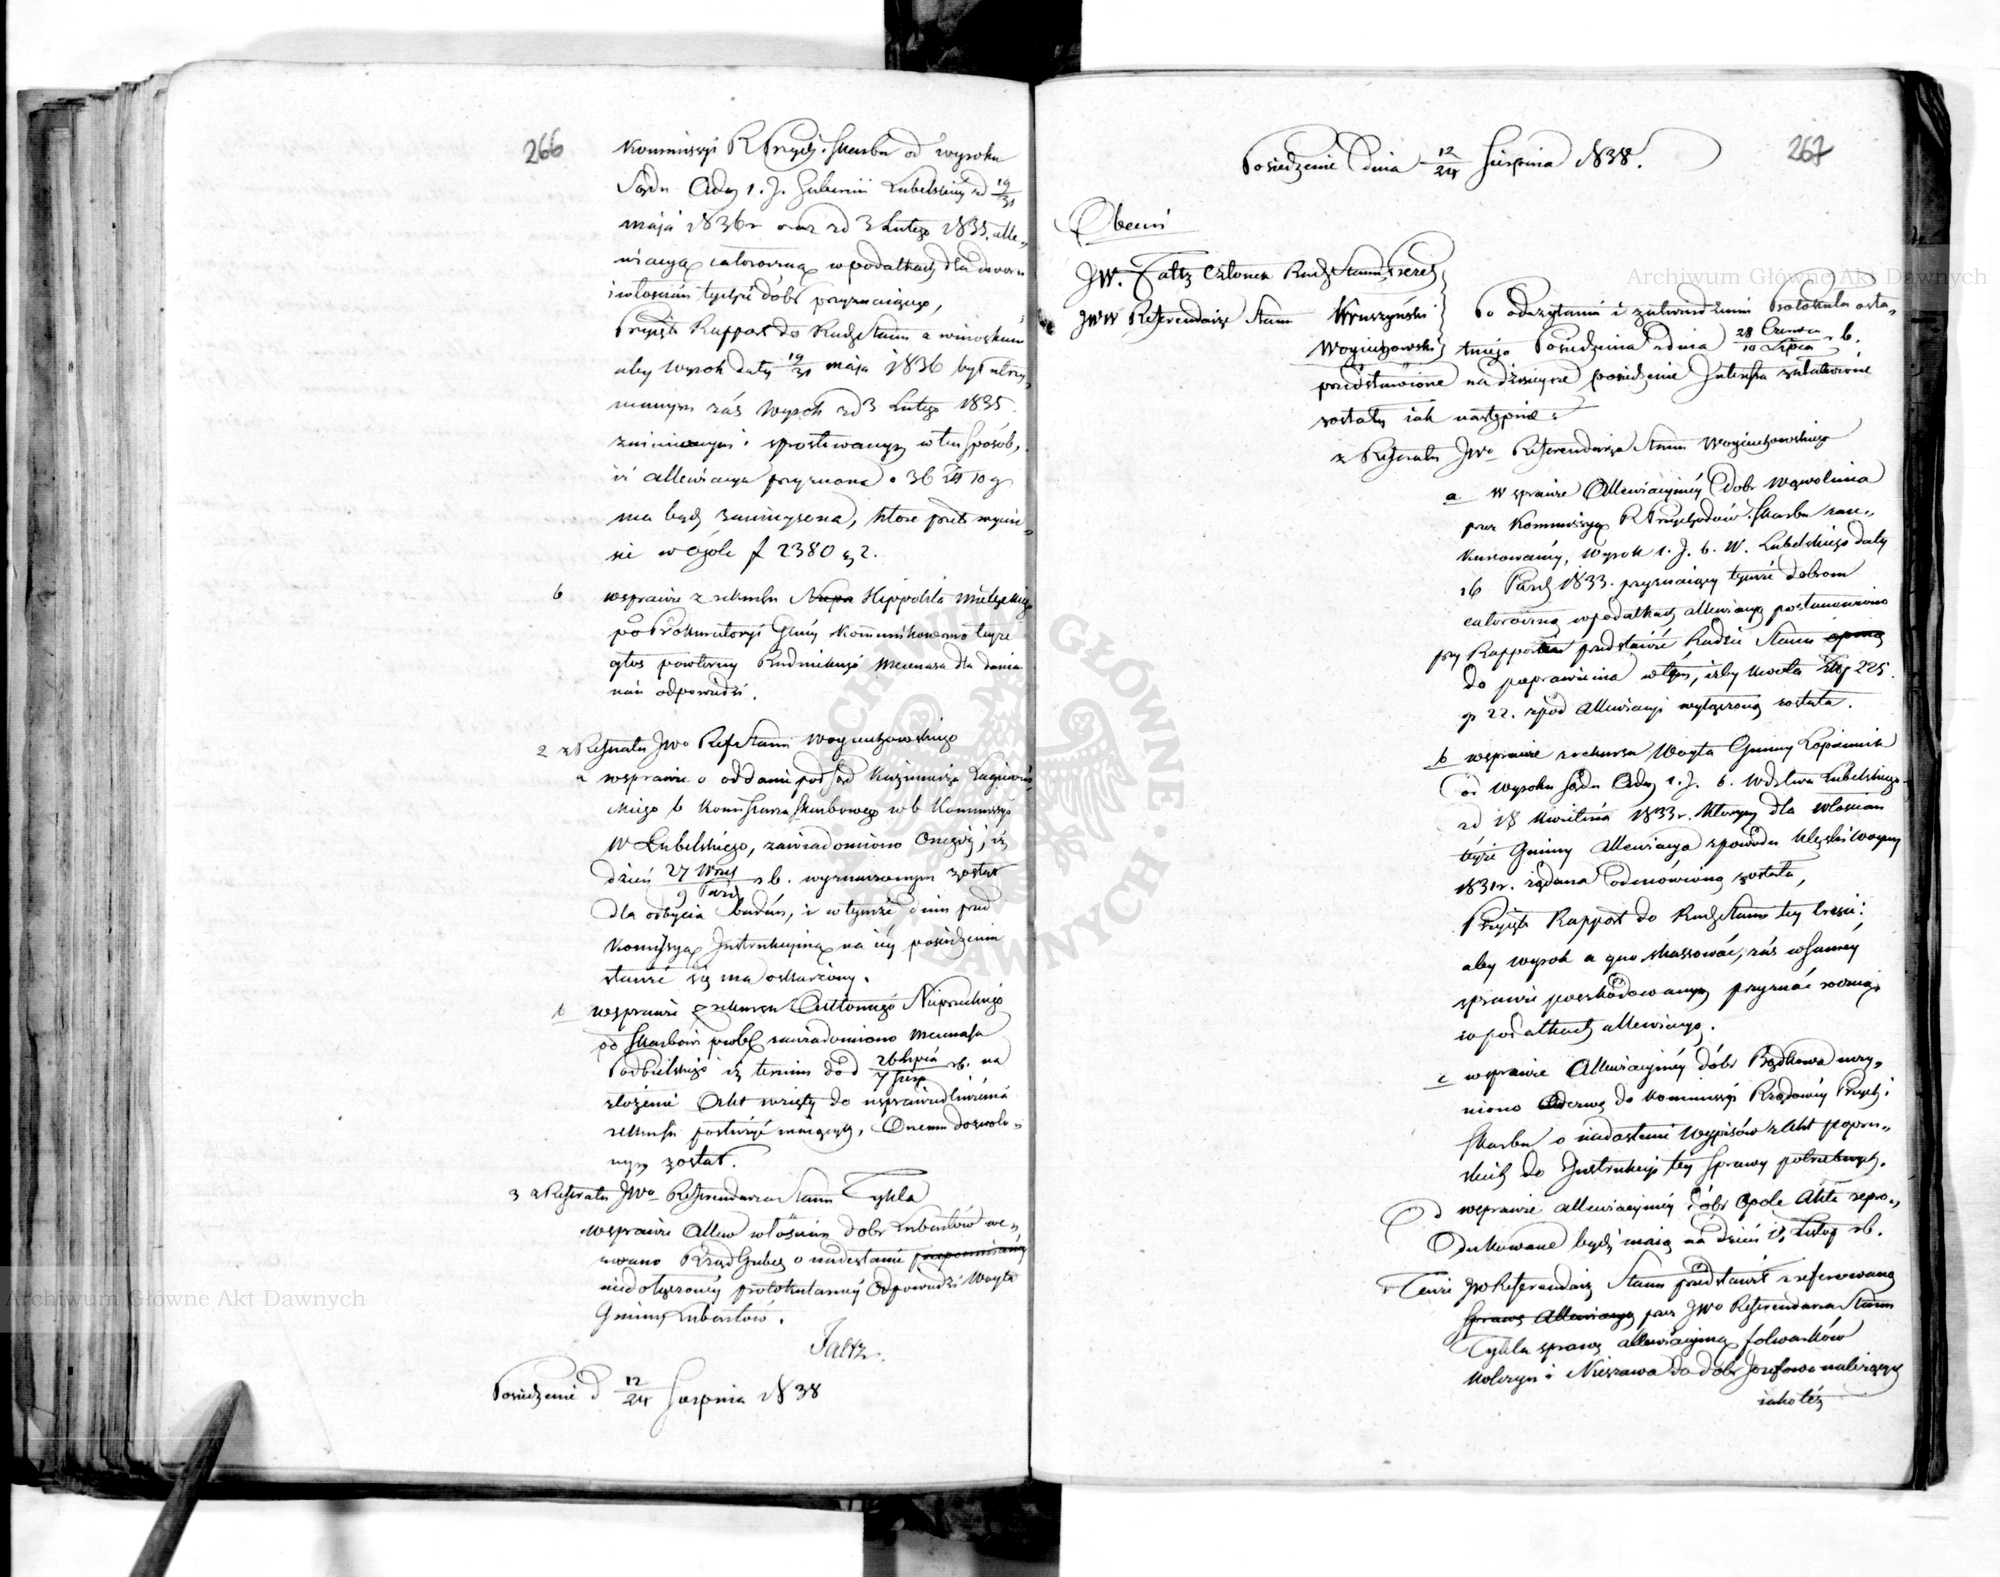 266
Kommissyi R Przych. i Skarbu od wyroku
Sądu Adm 1. J. Gubernii Lubelskiey z d 19/31
maja 1836 r oraz z d 3 Lutego 1835, alle-
wiacyą całoroczną w podatkach dla dworu
i włościan tychże dóbr przyznaiące,
Przyięto Rapport do Rady Stanu z wnioskiem
aby wyrok daty 19/31 maja 1836 był utrzy-
manym zaś wyrok z d 3 Lutego 1835
zmienionym i sprostowanym w ten sposób,
iż allewiacya przyznana o 36 zł 10 g
ma być zmnieyszona, które przeto wynie-
sie w ogóle f 2380 g 2.
b w sprawie z rekursu Hippolita
po Prokuratoryi Głney kommunikowano teyże
głos powtórny Rudnickiego Mecenasa dla dania
nań odpowiedzi.
2 z Referatu JWo Ref Stanu Woyciechowskiego
a w sprawie o oddanie pod sąd Kazimierza
b Kommissarza Skarbowego w b Kommissyi
W Lubelskiego, zawiadomiono Onegoż, iż
dzień 27 Wrześ/9 Paźd r b. wyznaczonym został
dla odbycia badań, i w tymże dniu przed
Kommissyą Instrukcyiną na iéy posiedzeniu
stawić się ma oskarżony.
b w sprawie z rekursu Antoniego
po Skarbowi publ zawiadomiono Mecenasa
Podbielskiego iż termin do d 26 Lipca/7 Sierp r b. na
złożenie Akt wzięty do usprawiedliwienia
rekursu posłużyć maiących, Onemu dozwolo-
nym został.
3 z Referatu JWo Referendarza Stanu Tykla
w sprawie Allew włościan dobr Lubartów we-
zwano Rząd Guber o nadesłanie
niedołączoney protokularney Odpowiedzi Woyta
Gminy Lubartów.
Faltz.
Posiedzenie d 12/24 Sierpnia 1838
267
Posiedzenie dnia 12/24 Sierpnia 1838.
Obecni
JW. Faltz Członek Rady Stanu Prezd
JWW Referendarze Stanu Kruszyński
Woyciechowski
Po odczytaniu i zatwierdzeniu Protokułu osta-
tniego Posiedzenia z dnia 28 Czerwca/10 Lipca r b.
przedstawione na dzisieysze posiedzenie Interessa załatwione
zostały iak następnie:
z Referatu JWo Referendarza Stanu Woyciechowskiego
a W sprawie Allewiacyinéy Dobr Wąwolnica
przez Kommissyą R Przychodów i Skarbu zare-
kurowanéy, wyrok 1. J. b. W. Lubelskiego daty
16 Paźd 1833. przyznaiący tymże dobrom
całoroczną w podatkach allewiacyą postanowiono
przy Rapporcie przedstawić Radzie Stanu
do poprawienia w tém, iżby kwota Złp 225
gr 22. z pod Allewiacyi wyłączoną została.
b w sprawie z rekursu Woyta Gminy Łopiennik
od wyroku Sądu Adm 1. J. b. Wdztwa Lubelskiego
z d 18 Kwietnia 1833 r. którym dla włościan
teyże Gminy Allewiacya z powodu klęski Woyny
1831 r. żądana odmówioną została,
Przyięto Rapport do Rady Stanu tey treści:
aby wyrok a quo skassować, zaś w saméy
sprawie poszkodowanym przyznać roczną
w podatkach allewiacyą.
c w sprawie Allewiacyinéy dóbr Bądkowa uczy-
niono Odezwę do Kommissyi Rządowéy Przych i
Skarbu o nadesłanie Wypisów z Akt poprzu-
skich do Instrukcyi tey sprawy potrzebnych.
d w sprawie allewiacyinéy dóbr Opole Akta repro-
dukowane bydź maią na dzień Lutego r b.
Tenże JW Referendarz Stanu przedstawił zreferowaną
sprawę Allewiacyą przez JWo Referendarza Stanu
Tykla sprawę allewiacyiną folwarków
Kolczyn i Niezawa do dóbr Józefowa należących
iako też
Archiwum Główne Akt Dawnych
Archiwum Główne Akt Dawnych
ARCHIWUM GŁÓWNE AKT DAWNYCH